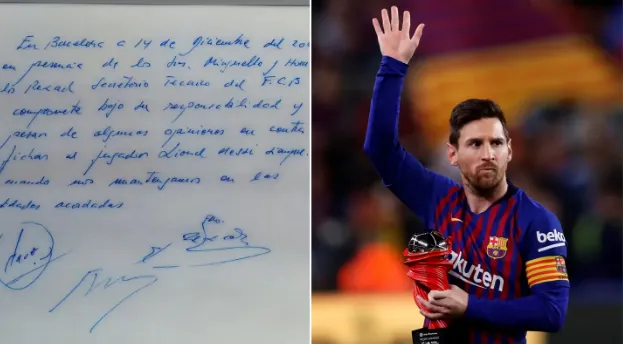 En Barcelona a 14 de diciembre del 20
en presencia de los Srs. Minguella y Hora
Rexach Secretario Tecnico del F.C.B
compromete bajo su responsabilidad y
pesar de algunas opiniones en contra
fichar al jugador Lionel Messi siempre
cuando nos mantengamos en las
tidades acordadas
beko
Rakuten